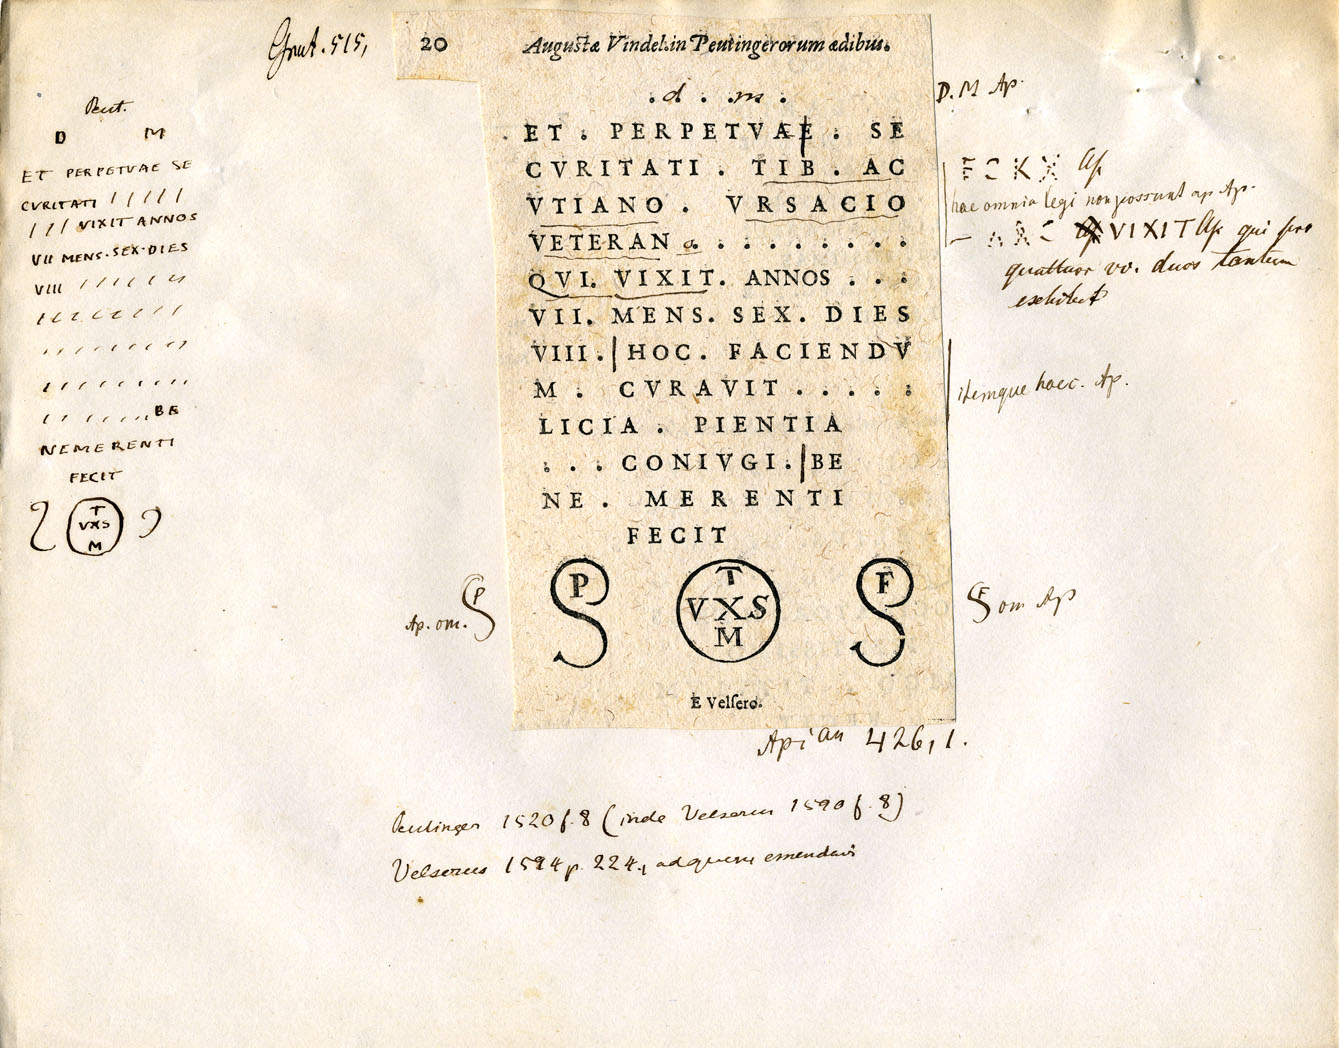 Grut. 515,
20 Augustæ Vindel. in Peutingerorum ædibus.
Peut.
D M
ET PERPETVAE SE
CVRITATI / / / / /
/ / / VIXIT ANNOS
VII MENS. SEX. DIES
VIII / / / / / /
BE
NEMERENTI
FECIT
T
VXS
M
. d . m .
ET . PERPETVAE . SE
CVRITATI . TIB . AC
VTIANO . VRSACIO
VETERAN o . . . . . . . .
QVI. VIXIT. ANNOS . . .
VII. MENS. SEX. DIES
VIII. | HOC. FACIENDV
M . CVRAVIT . . . . .
LICIA . PIENTIA
. . . CONIVGI. | BE
NE . MERENTI
FECIT
P
T
VXS
M
F
E Velſero.
D. M Ap.
F C K X Ap
hae omnia legi non possunt ap Ap.
VIXIT Ap qui pro
quattuor vv. duos tantum
exhibet
itemque haec. Ap.
Ap. om. P
F om Ap
Apian 426,1.
Peutinger 1520 f. 8 (inde Velserus 1590 f. 8)
Velserus 1594 p. 224, ad quem emendavi